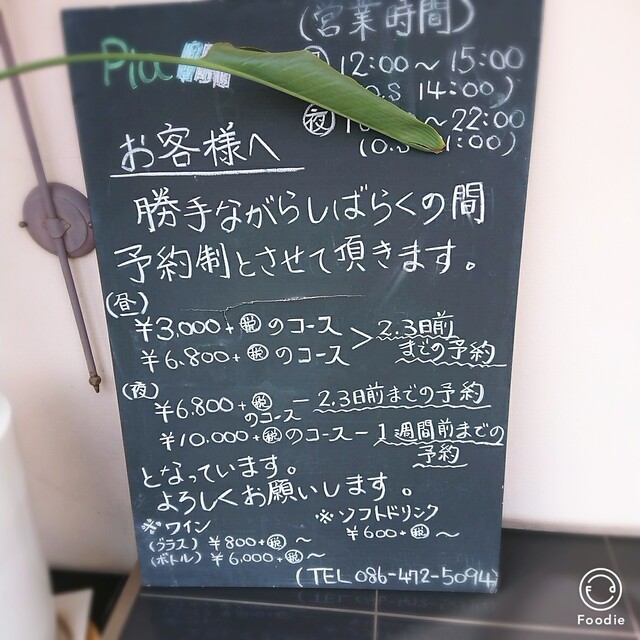 (営業時間)
12:00〜15:00
14:00)
夜 〜22:00
お客様へ
勝手ながらしばらくの間
予約制とさせて頂きます。
(昼)
¥3.000+税のコース > 2.3日前
¥6.800+税のコース までの予約
(夜)
¥6.800+税のコース ー 2.3日前までの予約
¥10.000+税のコース ー 1週間前までの
予約
となっています。
よろしくお願いします。
※ワイン
(グラス) ¥800+税〜
(ボトル) ¥6,000+税〜
※ソフトドリンク
¥600+税〜
(TEL 086-472-5094)
Foodie